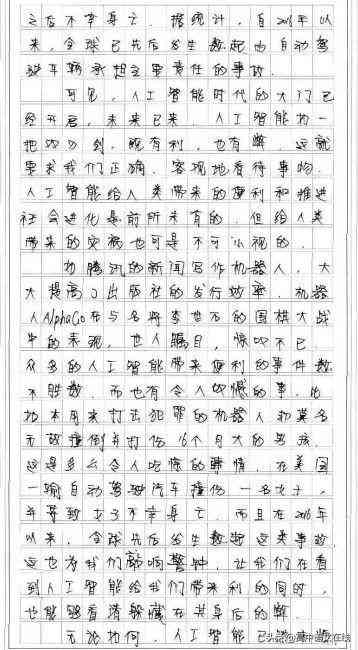 之后不幸身亡。据统计，自2016年以
来，全球已先后发生数起由自动驾
驶车辆承担主要责任的事故。
可见，人工智能时代的大门已
经开启，未来已来。人工智能如一
把 刀剑，既有利，也有弊。这就
要求我们正确、客观地看待事物。
人工智能给人类带来的便利和推进
社会进化是前所未有的，但给人类
带来的灾祸也可是不可小视的。
如腾讯的新闻写作机器人，大
大提高了出版社的发行效率，机器
人AlphaGo在与名将李世石的围棋大战
中的表现，世人瞩目，惊叹不已
众多的人工智能带来便利的事件数
不胜数。而也有令人 憾的事，比
如本用来打击犯罪的机器人却莫名
无故撞倒并打伤16个月大的男孩。
这是多么令人吃惊的事情。在美国
一辆自动驾驶汽车撞伤一名女子，
并导致女子不幸身亡。而且在2016年
以来，全球先后发生数起这类事故
这也为我们敲响警钟，让我们在看
到人工智能给我们带来利的同时，
也能够看清躲藏在其身后的弊。
无论如何，人工智能已
头条@高中语文在线